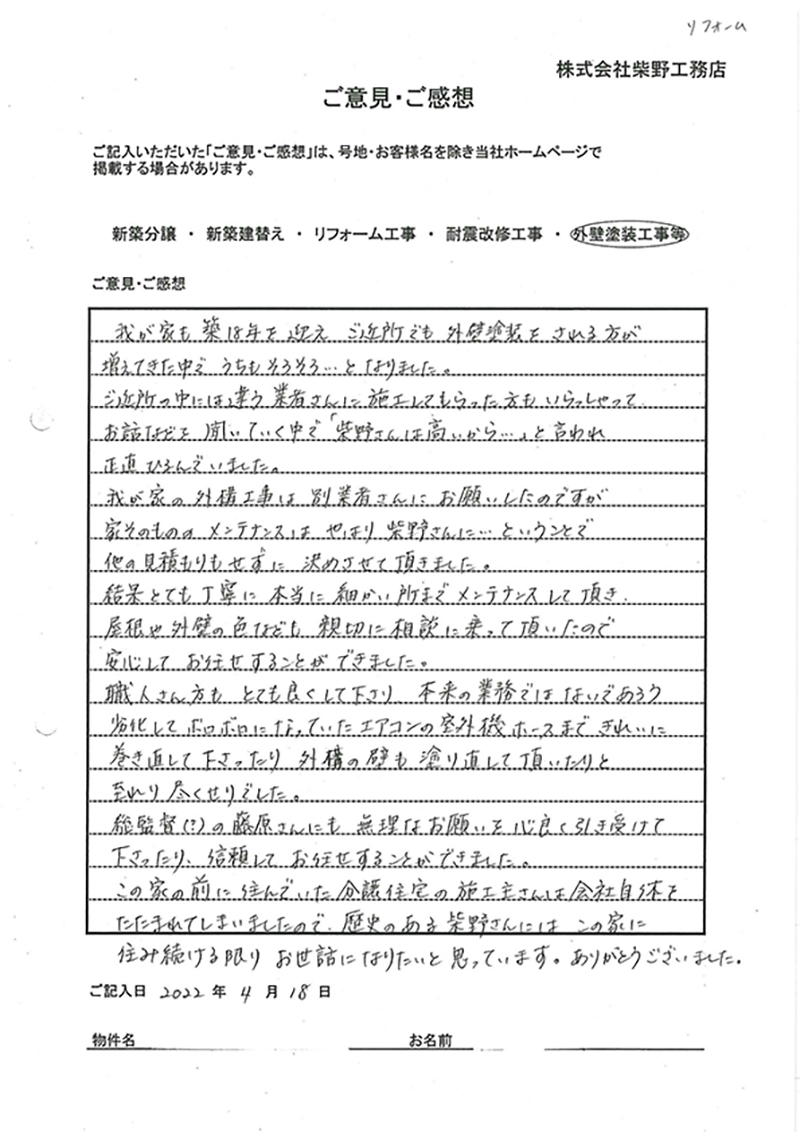 リフォーム
株式会社柴野工務店
ご意見・ご感想
ご記入いただいた「ご意見・ご感想」は、号地・お客様名を除き当社ホームページで
掲載する場合があります。
新築分譲 ・ 新築建替え ・ リフォーム工事 ・ 耐震改修工事 ・ 外壁塗装工事等
ご意見・ご感想
我が家も築18年を迎え ご近所でも外壁塗装をされる方が
増えてきた中で うちもそろそろ…となりました。
ご近所の中には違う業者さんに施工してもらった方もいらっしゃって
お話などを聞いていく中で「柴野さんは高いから…」と言われ
正直ひるんでいました。
我が家の外構工事は別業者さんにお願いしたのですが
家そのもののメンテナンスは やはり柴野さんに…ということで
他の見積もりもせずに 決めさせて頂きました。
結果とても丁寧に本当に細かい所までメンテナンスして頂き、
屋根や外壁の色なども 親切に相談に乗って頂いたので
安心して お任せすることができました。
職人さん方も とても良くして下さり 本来の業務ではないであろう
劣化してボロボロになっていたエアコンの室外機ホースまできれいに
巻き直して下さったり 外構の壁も塗り直して頂いたりと
至れり尽くせりでした。
総監督(?)の藤原さんにも 無理なお願いを心良く引き受けて
下さったり、信頼して お任せすることができました。
この家の前に住んでいた分譲住宅の施工主さんは会社自体を
たたまれてしまいましたので、歴史のある柴野さんには この家に
住み続ける限り お世話になりたいと思っています。ありがとうございました。
ご記入日 2022 年 4 月 18 日
物件名 お名前